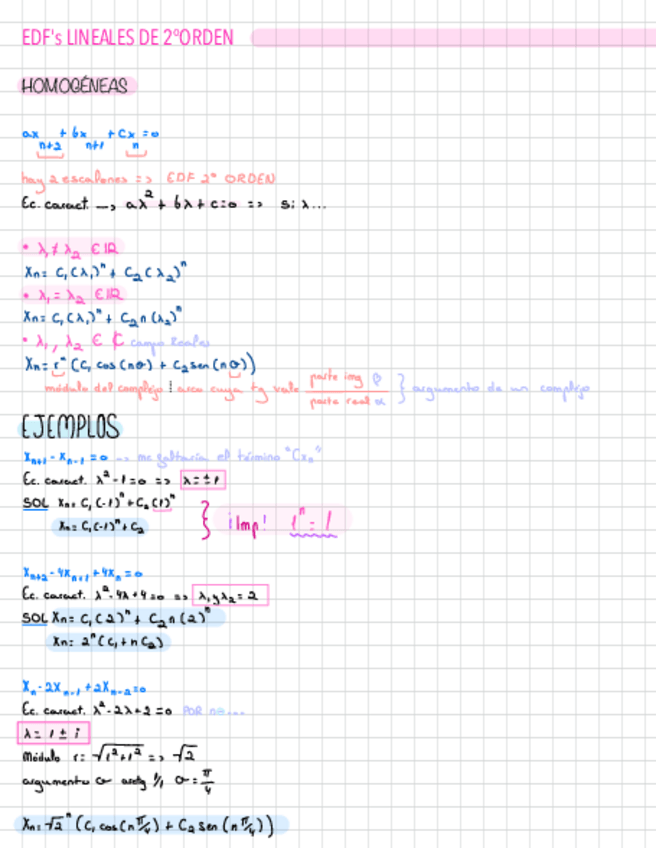 EDF's LINEALES DE 2ºORDEN
HOMOGÉNEAS
ax n+2 + bx n+1 + cx n = 0
hay 2 escalones => EDF 2º ORDEN
Ec. caract. --> aλ² + bλ + c = 0 => si λ...
• λ₁ ≠ λ₂ ∈ ℝ
Xn = C₁(λ₁)ⁿ + C₂(λ₂)ⁿ
• λ₁ = λ₂ ∈ ℝ
Xn = C₁(λ₁)ⁿ + C₂n(λ₂)ⁿ
• λ₁, λ₂ ∈ ℂ campo Reales
Xn = rⁿ(C₁ cos(nσ) + C₂ sen(nσ))
módulo del complejo | arco cuya tg vale parte img β / parte real α } argumento de un complejo
EJEMPLOS
Xn+1 - Xn-1 = 0 --> me faltaría el término "Cxn"
Ec. caract. λ² - 1 = 0 => λ = ± 1
SOL Xn = C₁(-1)ⁿ + C₂(1)ⁿ
Xn = C₁(-1)ⁿ + C₂ } ¡Imp! 1ⁿ = 1
Xn+2 - 4Xn+1 + 4Xn = 0
Ec. caract. λ² - 4λ + 4 = 0 => λ₁ y λ₂ = 2
SOL Xn = C₁(2)ⁿ + C₂n(2)ⁿ
Xn = 2ⁿ(C₁ + nC₂)
Xn - 2Xn-1 + 2Xn-2 = 0
Ec. caract. λ² - 2λ + 2 = 0 POR
λ = 1 ± i
Módulo r = √1²+1² => √2
argumento σ arctg 1/1 σ = π/4
Xn = √2ⁿ (C₁ cos(n π/4) + C₂ sen(n π/4))